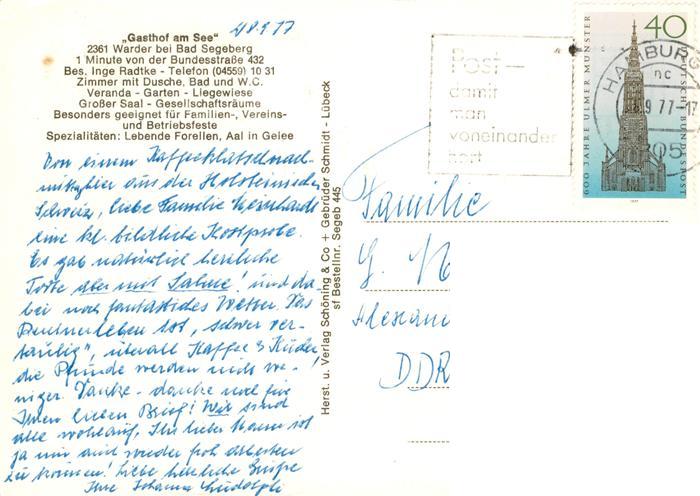 18.9.77
„Gasthof am See"
2361 Warder bei Bad Segeberg
1 Minute von der Bundesstraße 432
Bes. Inge Radtke - Telefon (04559) 10 31
Zimmer mit Dusche, Bad und W.C.
Veranda - Garten - Liegewiese
Großer Saal - Gesellschaftsräume
Besonders geeignet für Familien-, Vereins-
und Betriebsfeste
Spezialitäten: Lebende Forellen, Aal in Gelee
Von einem Kaffeeklatschnach-
mittag hier aus der Holsteinischen
Schweiz, liebe Familie
eine kl. bildliche Kostprobe.
Es gab natürlich herrliche
Torte aber mit Sahne! und da-
bei noch fantastisches Wetter. Das
Rentnerleben ist „schwer ver-
daulich", überall Kaffee & Kuchen,
die Pfunde werden nicht we-
niger. Danke - danke noch für
Ihren lieben Brief! Wir sind
alle wohlauf, Ihr lieber Mann ist
ja nun auch wieder froh arbeiten
zu können! Liebe herzliche Grüße
Ihre Johanna
Herst. u. Verlag Schöning & Co + Gebrüder Schmidt - Lübeck
sf Bestellnr. Segeb 445
Post-
damit
man
voneinander
hört
HAMBURG
nc
.9.77-17
205
40
600 JAHRE ULMER MÜNSTER
DEUTSCHE BUNDESPOST
1977
Familie
G. N
Alexan
DDR